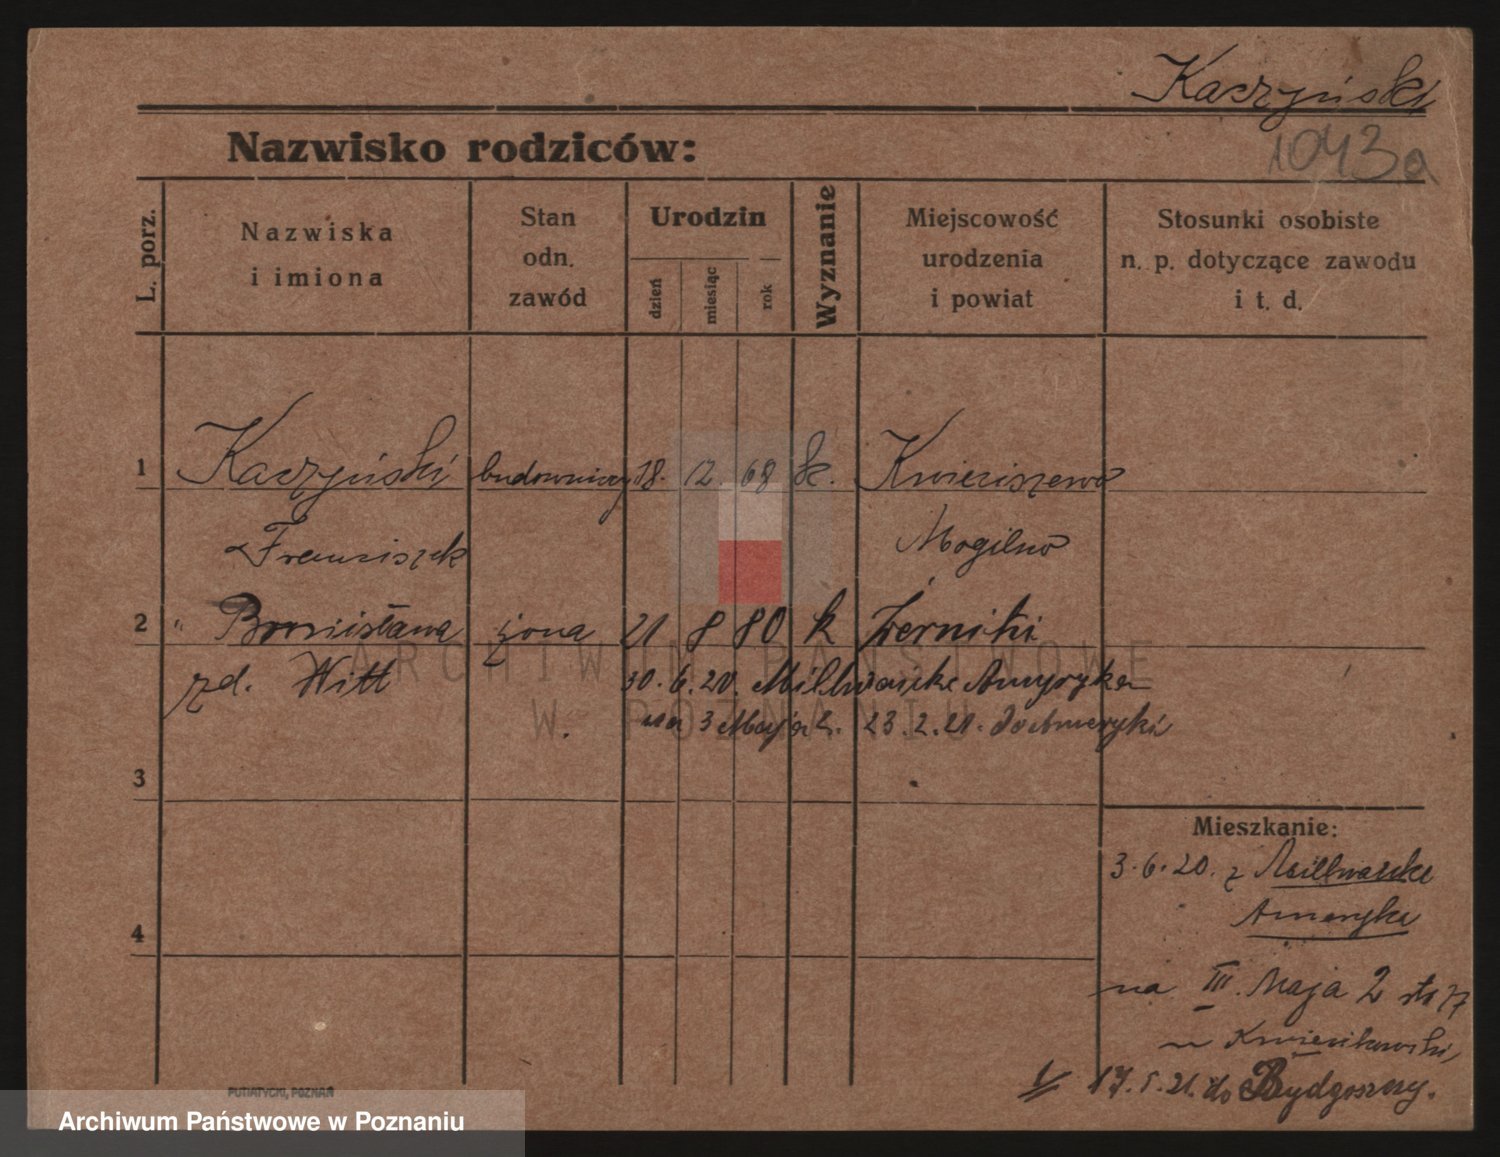 Kaczyński
1043a
Nazwisko rodziców:
L. porz.
Nazwiska
i imiona
Stan
odn.
zawód
Urodzin
dzień
miesiąc
rok
Wyznanie
Miejscowość
urodzenia
i powiat
Stosunki osobiste
n. p. dotyczące zawodu
i t. d.
1 Kaczyński budowniczy 18. 12. 68 k. Kwieciszewo
Franciszek Mogilno
2 " Bronisława żona 21 8 80 k Żerniki
zd. Witt 30. 6. 20. Millwauke Ameryka
na 3 Maja 2. 23. 2. 21. do Ameryki
3
Mieszkanie:
3. 6. 20. z Millwauke
Ameryka
4
na III. Maja 2
u
17. 5. 21. do Bydgoszczy.
PUTIATYCKI, POZNAŃ
ARCHIWUM PAŃSTWOWE
W POZNANIU
Archiwum Państwowe w Poznaniu